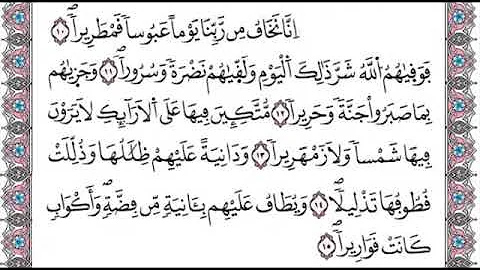 اِنَّا نَخَافُ مِن رَّبِّنَا يَوْماً عَبُوساً قَمْطَرِيراً ۝١٠
فَوَقٰيهُمُ ٱللَّهُ شَرَّ ذَٰلِكَ ٱلْيَوْمِ وَلَقّٰيهُمْ نَضْرَةً وَسُرُوراً ۝١١ وَجَزٰيهُم
بِمَا صَبَرُوا جَنَّةً وَحَرِيراً ۝١٢ مُتَّكِـِٔينَ فِيهَا عَلَى ٱلْأَرَآئِكِ لَا يَرَوْنَ
فِيهَا شَمْساً وَلَا زَمْهَرِيراً ۝١٣ وَدَانِيَةً عَلَيْهِمْ ظِلَٰلُهَا وَذُلِّلَتْ
قُطُوفُهَا تَذْلِيلاً ۝١٤ وَيُطَافُ عَلَيْهِم بِـَٔانِيَةٍ مِّن فِضَّةٍ وَأَكْوَابٍ
كَانَتْ قَوَارِيراً ۝١٥